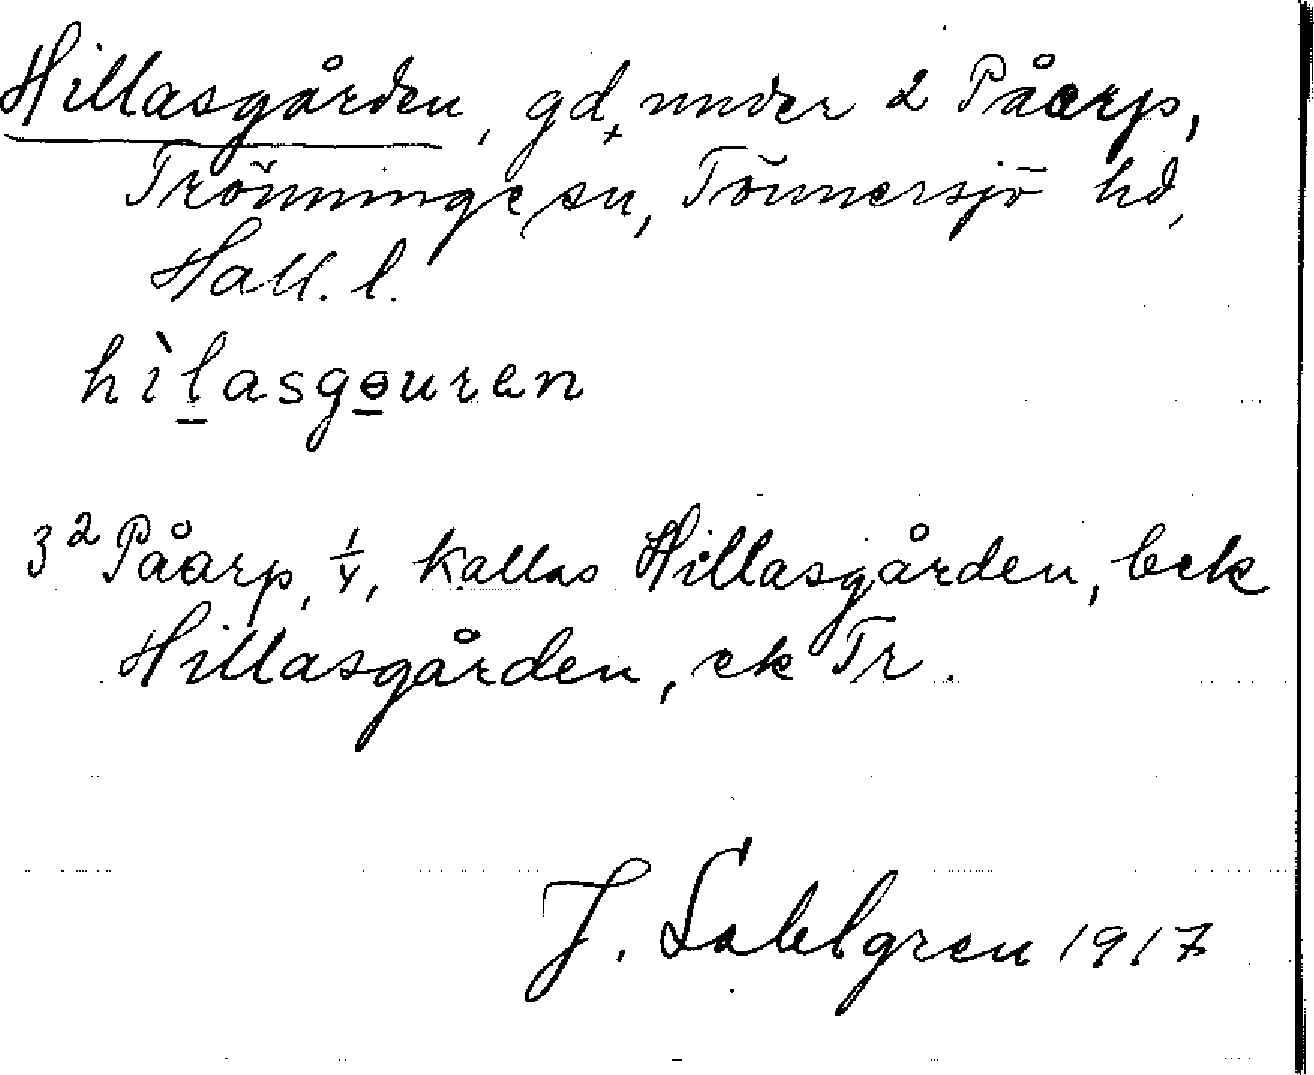 Hillasgården, gd, under 2 Påarp,
Trönninge sn, Tönnersjö hd,
Hall. l.
hìlasgɵuren
3² Påarp, 1/4, kallas Hillasgården, bek
Hillasgården, ek Tr.
J. Sahlgren 1917